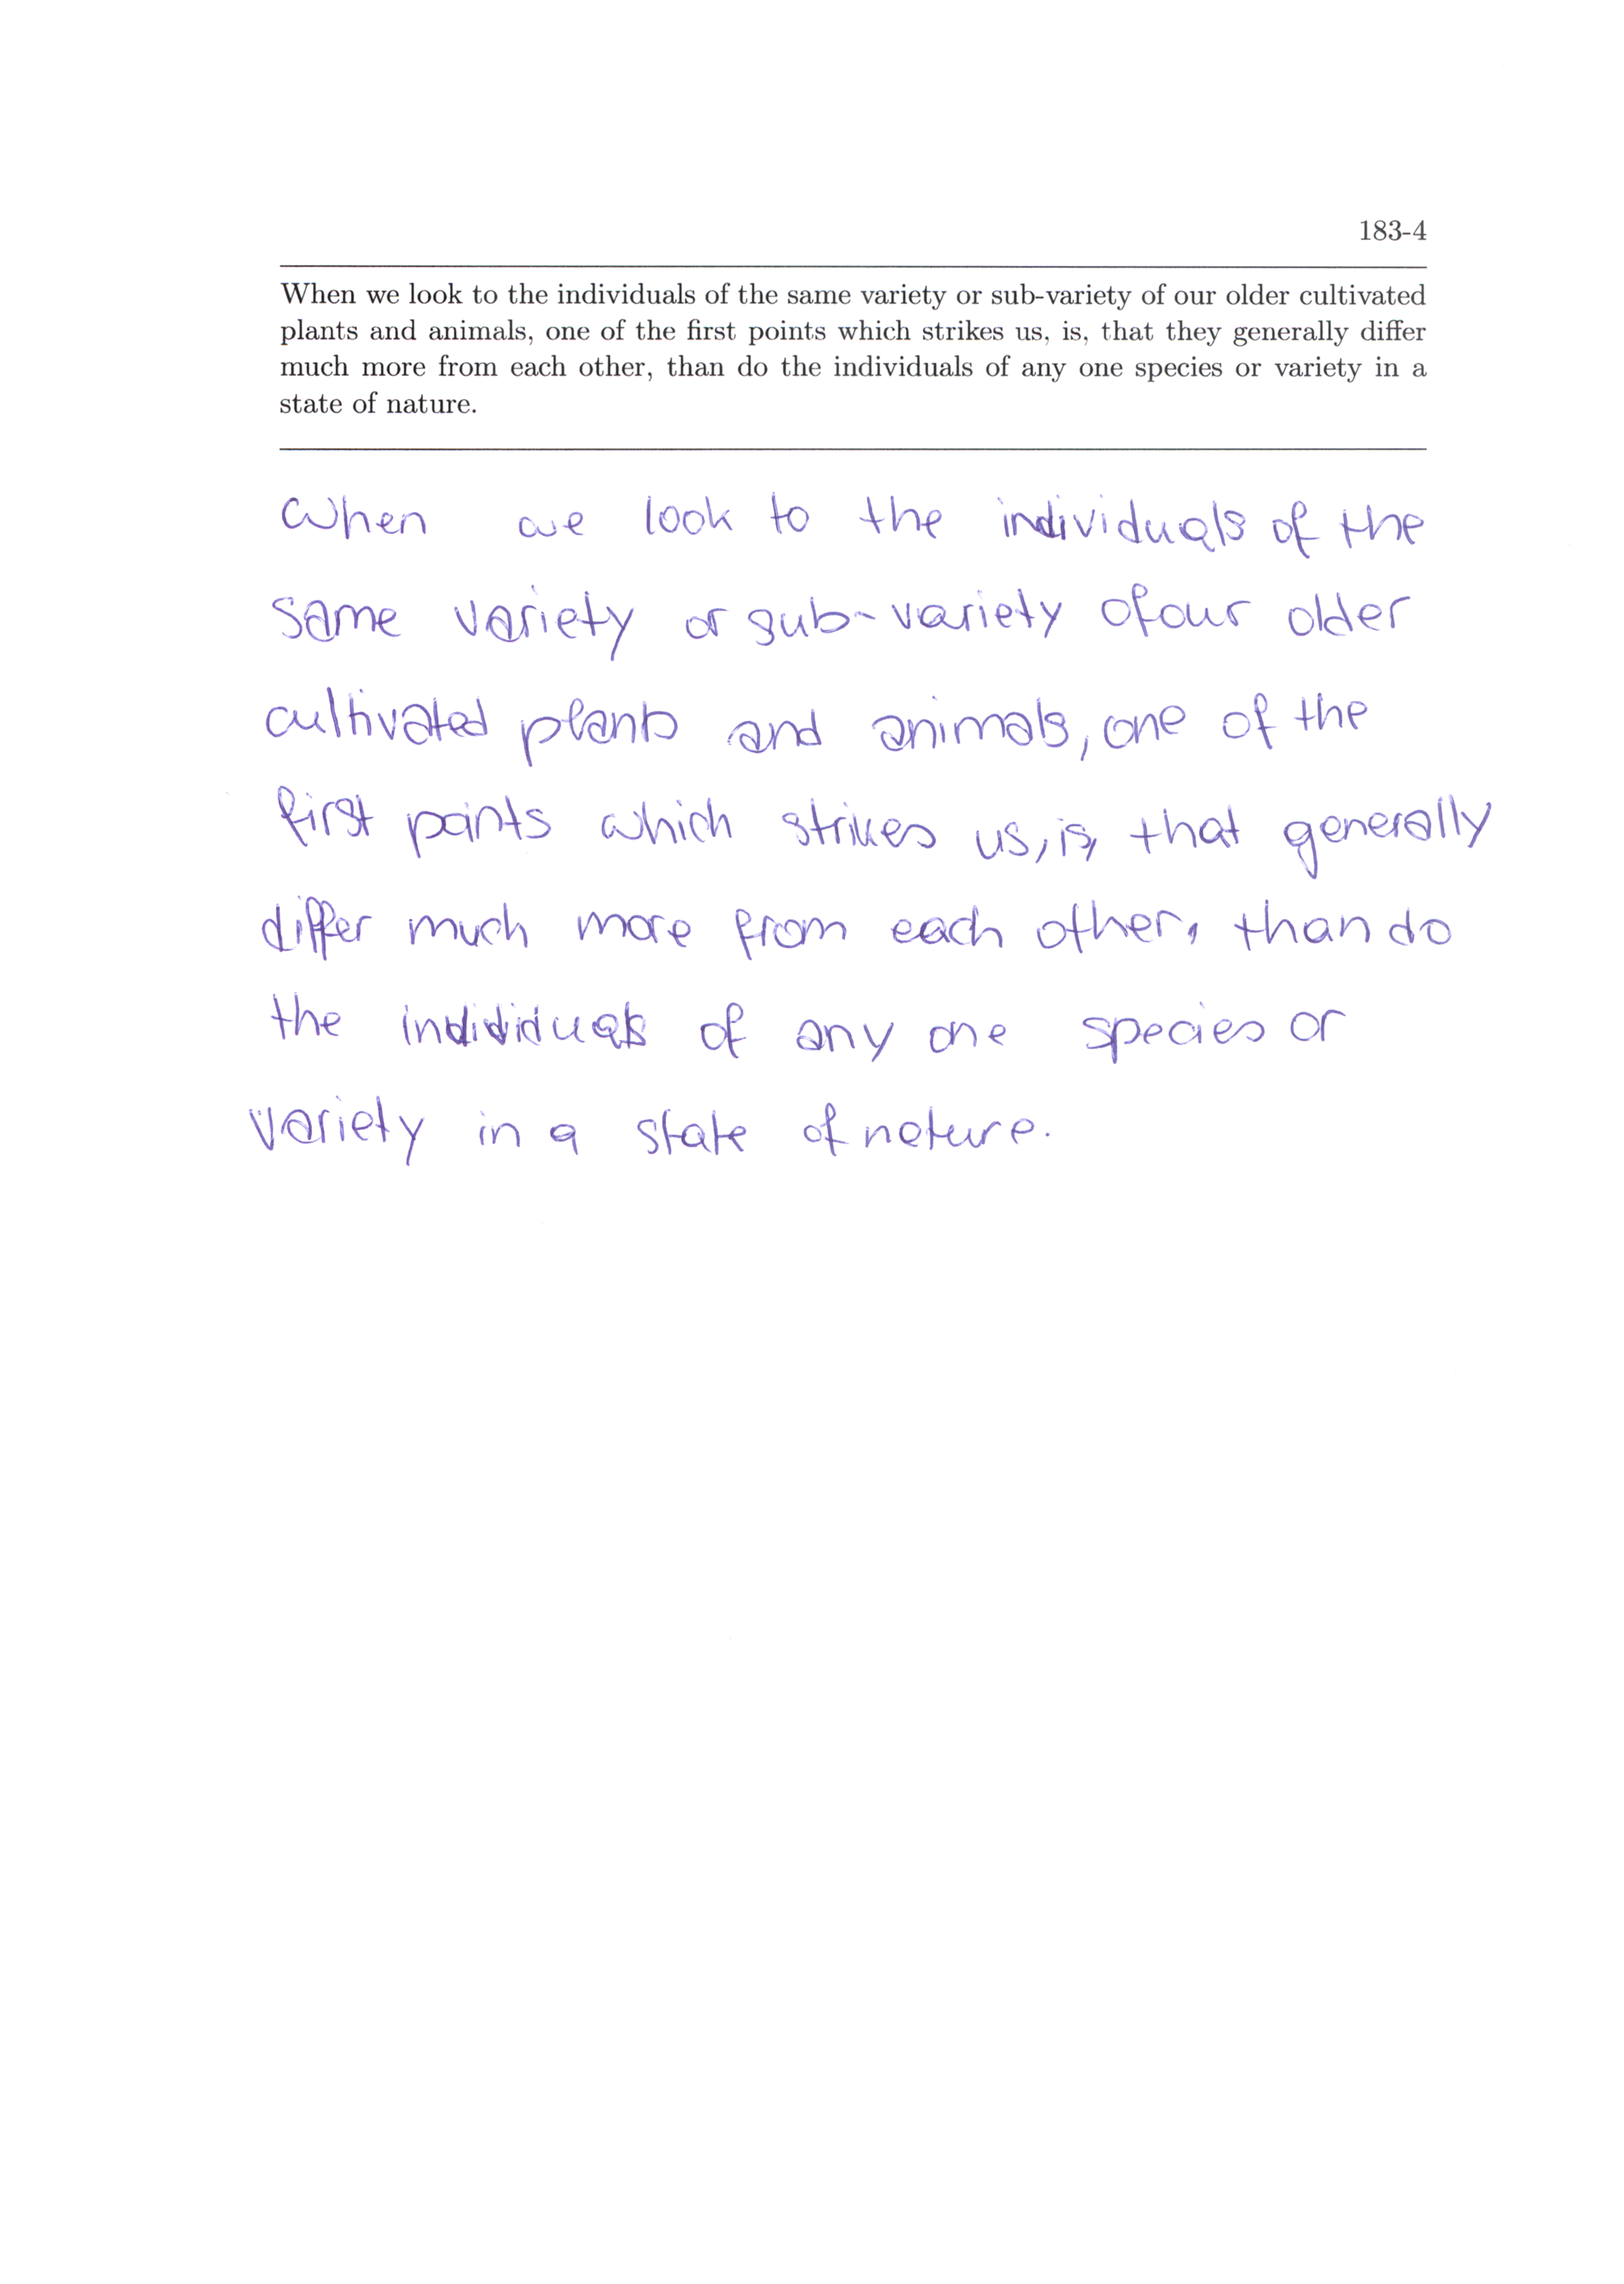 183-4
When we look to the individuals of the same variety or sub-variety of our older cultivated
plants and animals, one of the first points which strikes us, is, that they generally differ
much more from each other, than do the individuals of any one species or variety in a
state of nature.
When we look to the individuals of the
same variety or sub-variety of our older
cultivated plants and animals, one of the
first points which strikes us, is, that generally
differ much more from each other, than do
the indididuals of any one species or
variety in a state of nature.